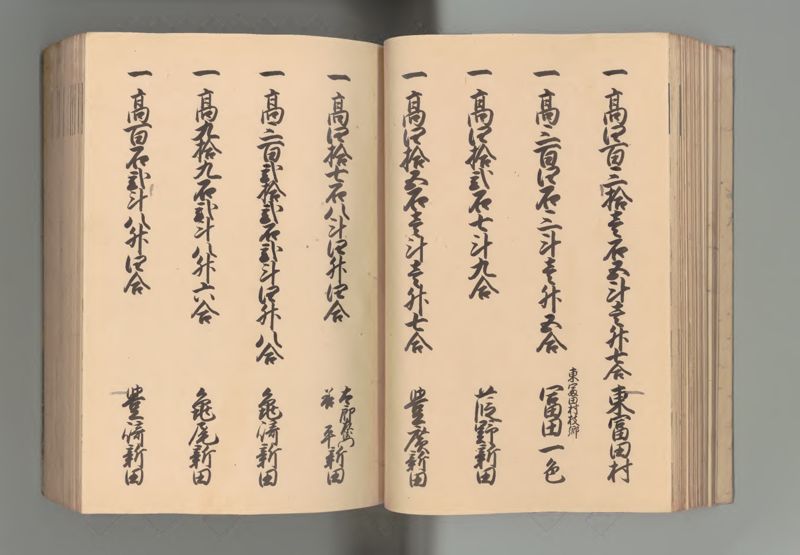 一 高四百三拾壱石五斗壱升七合 東冨田村
一 高三百四石三斗壱升五合 東冨田村枝郷 冨田一色
一 高四拾弐石七斗九合 荻野新田
一 高四拾五石壱斗壱升七合 豊廣新田
一 高四拾七石八斗四升四合 太郎左衛門 善平 新田
一 高二百弐拾弐石弐斗四升八合 亀﨑新田
一 高九拾九石弐斗八升六合 亀尾新田
一 高百石弐斗八升四合 豊﨑新田